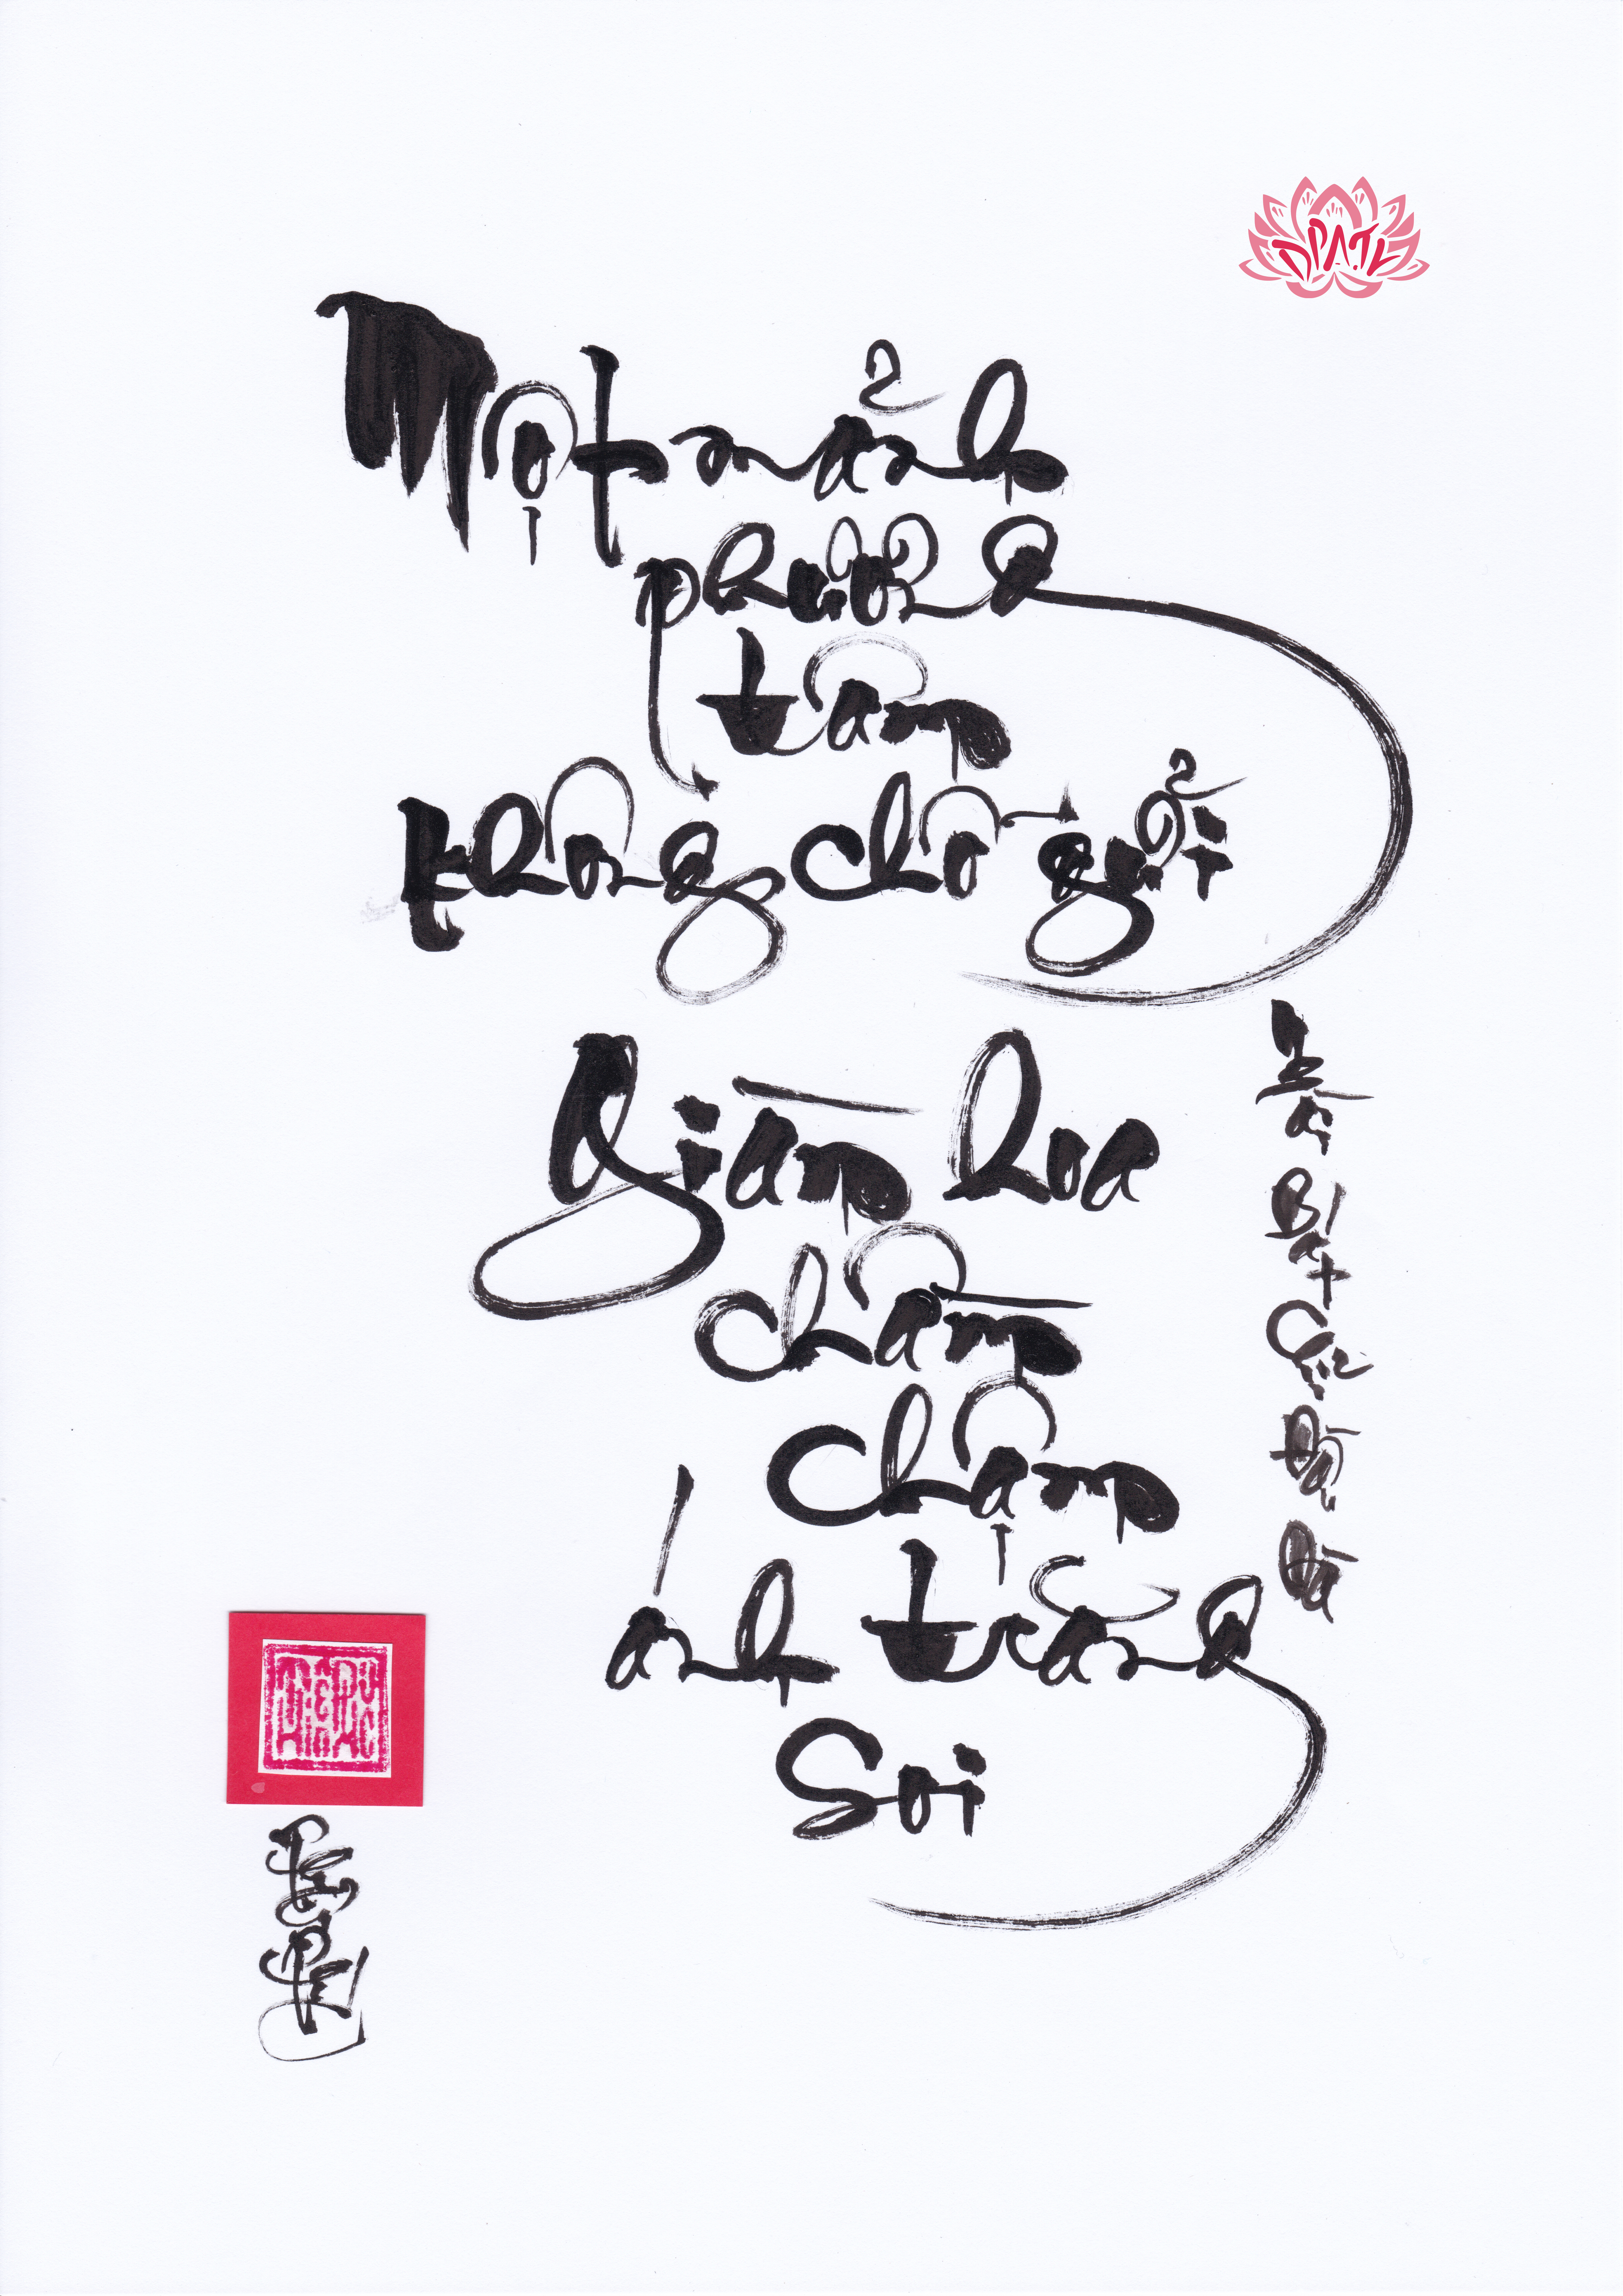 DPA.TL
Một mảnh
phương
tâm
không chỗ gửi
Giàn hoa
chầm
chậm
ánh trăng
soi